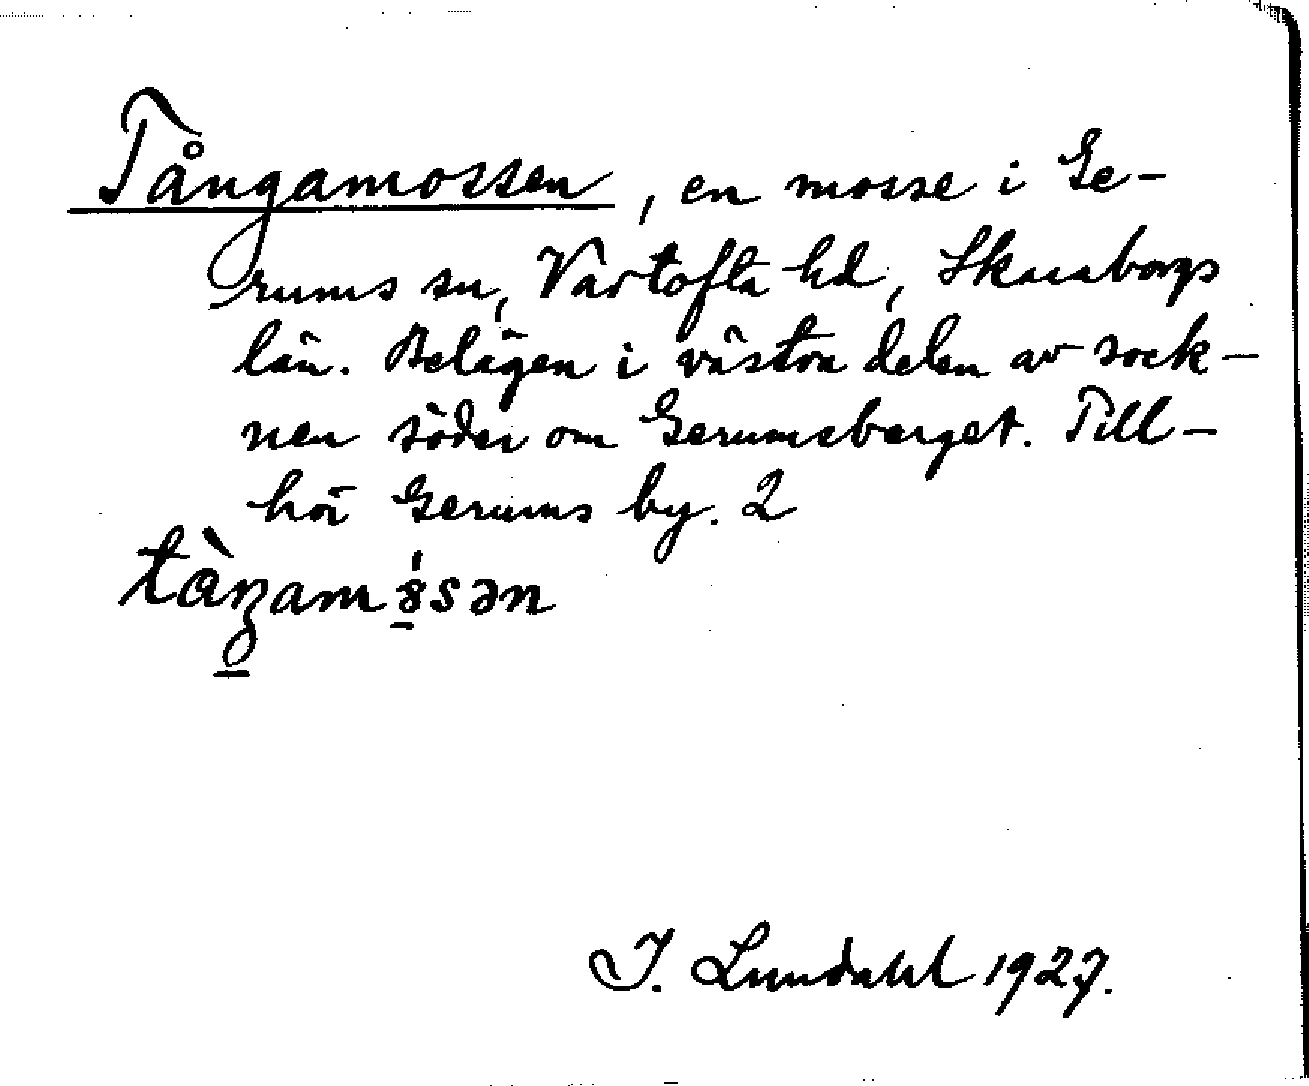 Tångamossen, en mosse i Ge-
rums sn, Vartofta hd, Skaraborgs
län. Belägen i västra delen av sock-
nen söder om Gerumsberget. Till-
hör Gerums by. 2
I. Lundahl 1927.